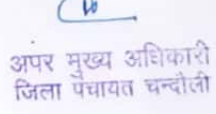 अपर मुख्य अधिकारी
जिला पंचायत चन्दौली